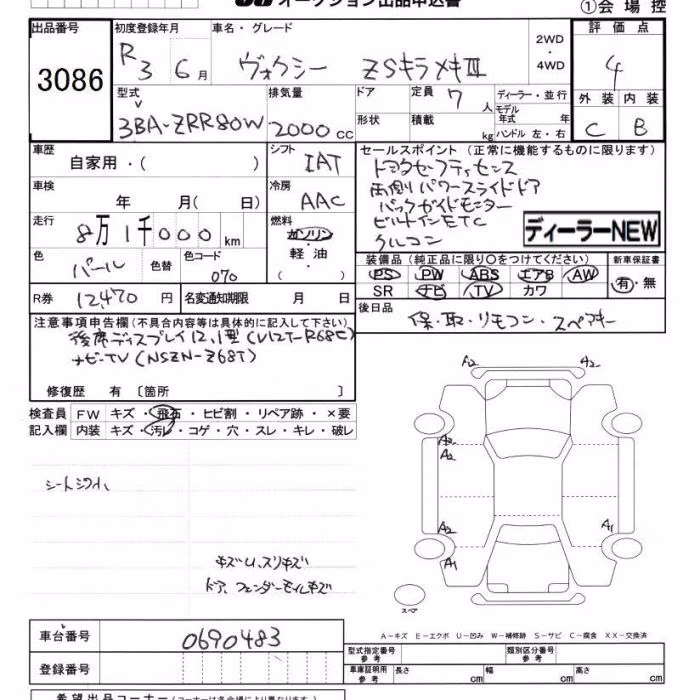 オークション出品申込書
①会場控
出品番号 3086
初度登録年月 R3 6月
車名・グレード ヴォクシー ZSキラメキⅢ
2WD・4WD
評価点 4
外装 C 内装 B
型式 3BA-ZRR80W
排気量 2000cc
ドア 形状
定員 7人 積載 kg
ディーラー・並行
モデル年式 年
ハンドル 左・右
車歴 自家用・( )
シフト IAT
セールスポイント(正常に機能するものに限ります)
トヨタセーフティセンス
両側パワースライドドア
バックガイドモニター
ビルトインETC
クルコン
ディーラーNEW
車検 年 月( 日)
冷房 AAC
走行 8万1千000km
燃料 ガソリン・軽油・( )
色 パール 色替 色コード 070
装備品(純正品に限り○をつけてください)
PS PW ABS エアB AW
SR ナビ TV カワ
新車保証書 有・無
R券 12,470円 名変通知期限 月 日
後日品 保・取・リモコン・スペアキー
注意事項申告欄(不具合内容等は具体的に記入して下さい)
後席ディスプレイ12.1型(V12T-R68C)
ナビ-TV(NSZN-Z68T)
修復歴 有〔箇所 〕
検査員記入欄
FW キズ・飛石・ヒビ割・リペア跡・×要
内装 キズ・汚レ・コゲ・穴・スレ・キレ・破レ
A2 A2
A2
A2
シートシワ小
A2 A1
A1
キズU、スリキズ
ドア、フェンダーモールキズ
スペア
A-キズ E-エクボ U-凹み W-補修跡 S-サビ C-腐食 XX-交換済
車台番号 0690483
型式指定番号 参考 類別区分番号 参考
登録番号
車庫証明用 参考 長さ cm 幅 cm 高さ cm
希望出品コーナー(コーナーは各会場により異なります)